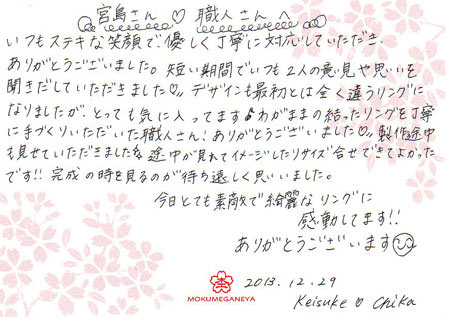 宮島さん ♡ 職人さんへ
いつもステキな笑顔で優しく丁寧に対応していただき、
ありがとうございました。短い期間でいつも2人の意見や思いを
聞きだしていただきました♡〃デザインも最初とは全く違うリングに
なりましたが、とっても気に入ってます♪わがままの結ったリングを丁寧
に手づくりいただいた職人さん!ありがとうございました♡〃製作途中
も見せていただきました 途中が見れてイメージしたりサイズ合せできてよかった
です!!完成の時を見るのが待ち遠しく思いました。
今日とても素敵で綺麗なリングに
感動してます!!
ありがとうございます
MOKUMEGANEYA
2013.12.29
Keisuke ♡ Chika